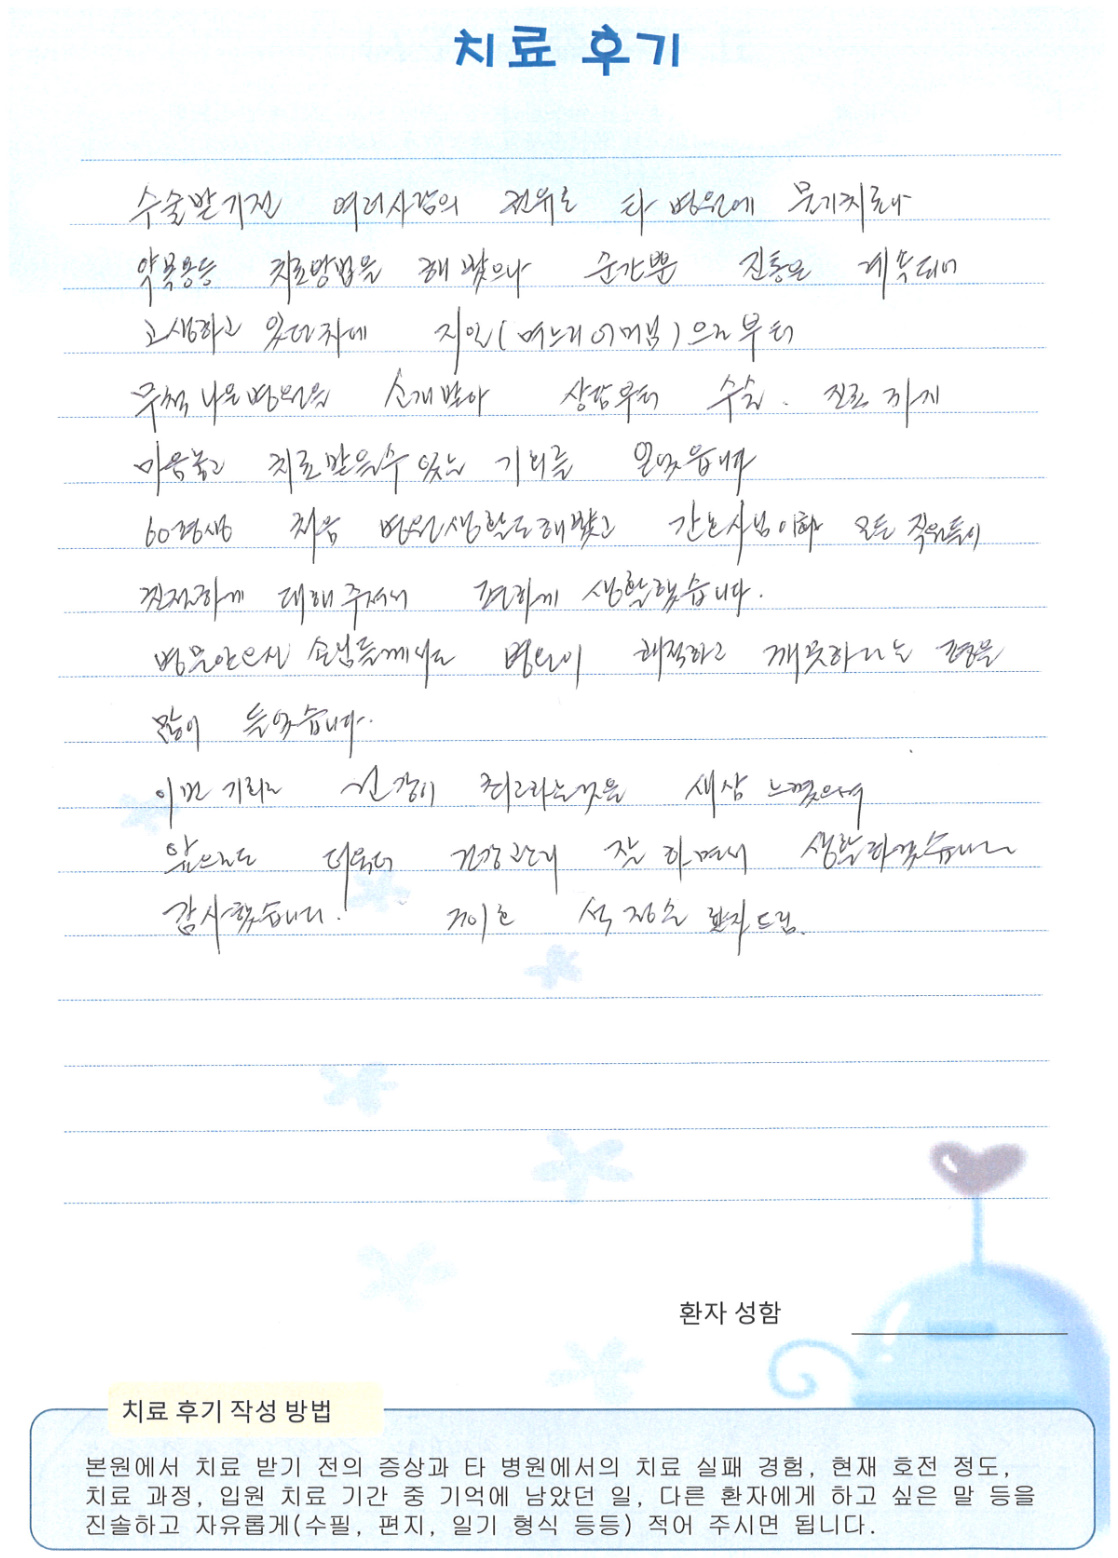 치료 후기
수술받기전 여러사람의 권유로 타 병원에 물리치료나
약복용등 치료방법을 해 봤으나 순간뿐 진통은 계속되어
고생하고 있던차에 지인(며느리 어머님)으로부터
무척 나은병원을 소개받아 상담부터 수술. 진료 까지
마음놓고 치료받을수 있는 기회를 얻었읍니다
60평생 처음 병원생활도 해봤고 간호사님이하 모든 직원들이
친절하게 대해주셔서 편하게 생활했습니다.
병문안오신 손님들께서도 병원이 쾌적하고 깨끗하다는 평을
많이 들었습니다.
이번 기회로 건강이 최고라는것을 새삼 느꼈으며
앞으로도 더욱더 건강관리 잘 하면서 생활하겠습니다
감사했습니다. 석 환자드림.
환자 성함
치료 후기 작성 방법
본원에서 치료 받기 전의 증상과 타 병원에서의 치료 실패 경험, 현재 호전 정도,
치료 과정, 입원 치료 기간 중 기억에 남았던 일, 다른 환자에게 하고 싶은 말 등을
진솔하고 자유롭게(수필, 편지, 일기 형식 등등) 적어 주시면 됩니다.